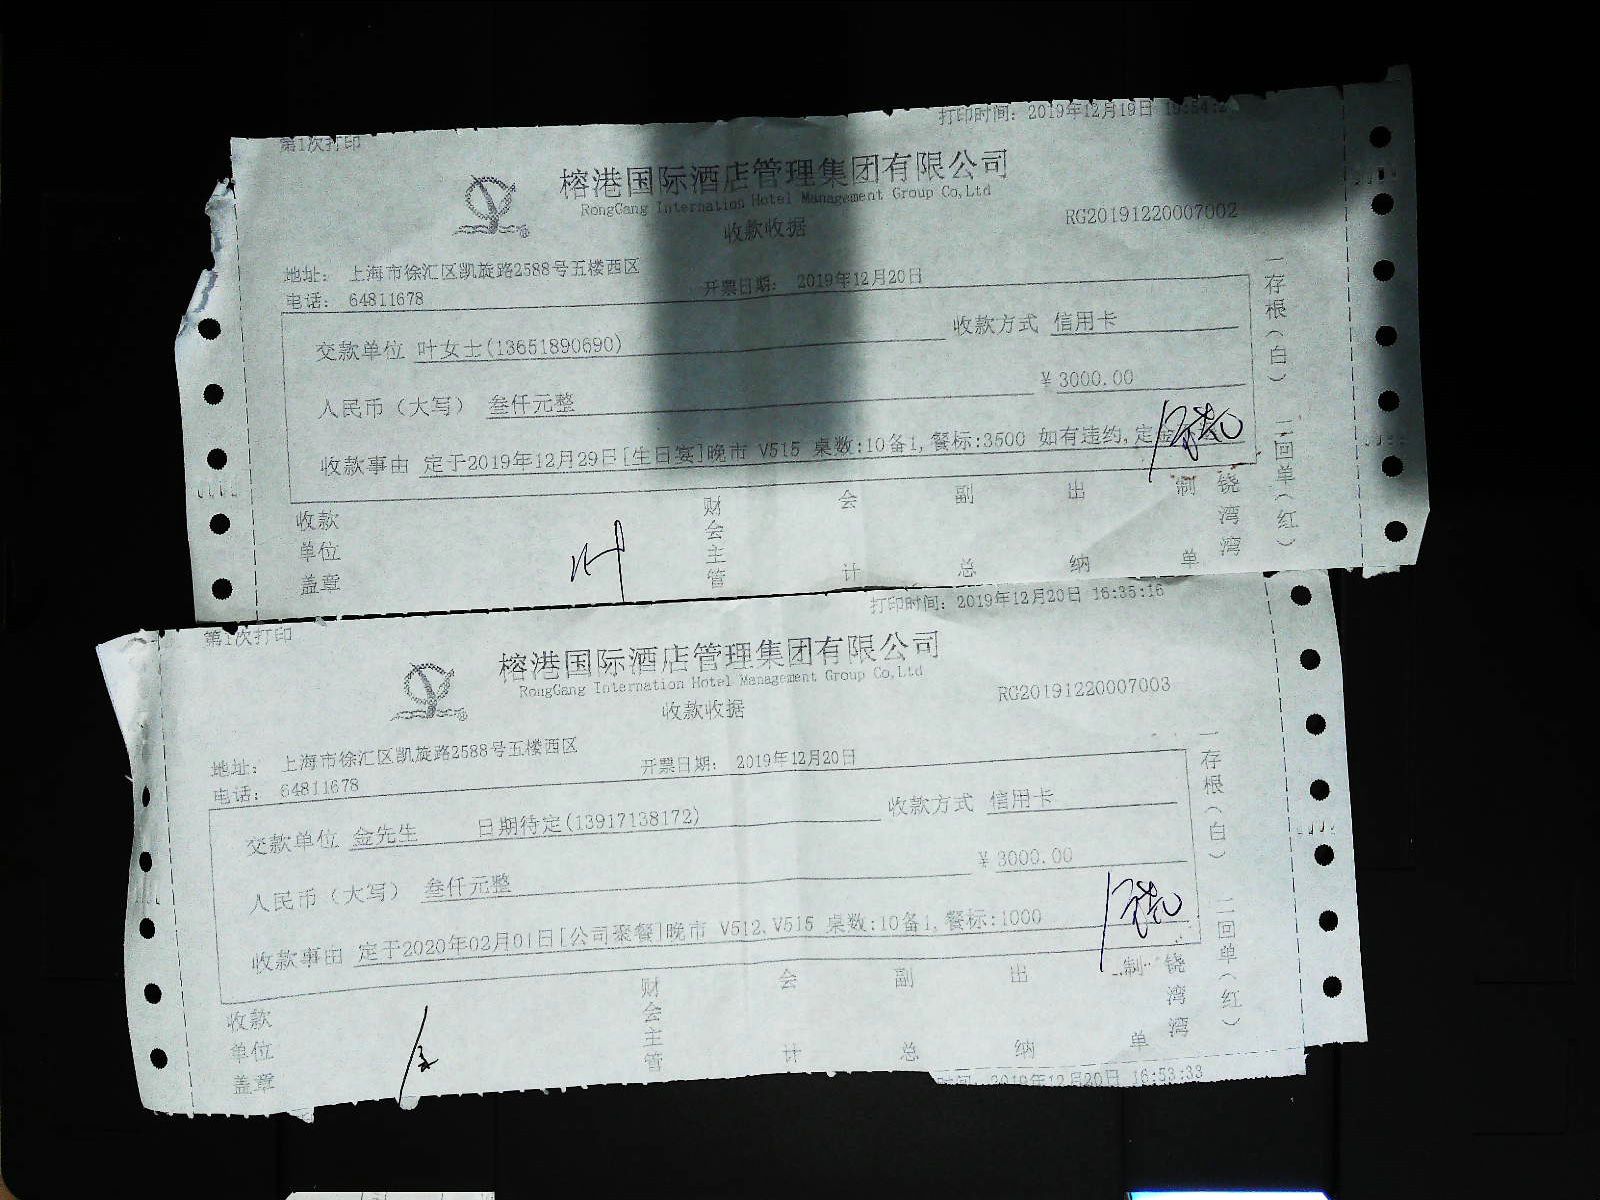 第1次打印 打印时间：2019年12月19日
榕港国际酒店管理集团有限公司
RongGang Internation Hotel Management Group Co,Ltd
收款收据 RG20191220007002
地址： 上海市徐汇区凯旋路2588号五楼西区
电话： 64811678 开票日期： 2019年12月20日
交款单位 叶女士(13651890690) 收款方式 信用卡
人民币（大写） 叁仟元整 ￥3000.00
收款事由 定于2019年12月29日[生日宴]晚市 V515 桌数:10备1,餐标:3500 如有违约,定金
收款单位盖章 叶 财会主管 会计 副总 出纳 制单 饶湾湾
一存根（白） 二回单（红）
第1次打印 打印时间：2019年12月20日 16:35:16
榕港国际酒店管理集团有限公司
RongGang Internation Hotel Management Group Co,Ltd
收款收据 RG20191220007003
地址： 上海市徐汇区凯旋路2588号五楼西区
电话： 64811678 开票日期： 2019年12月20日
交款单位 金先生 日期待定(13917138172) 收款方式 信用卡
人民币（大写） 叁仟元整 ￥3000.00
收款事由 定于2020年02月01日[公司聚餐]晚市 V512、V515 桌数:10备1,餐标:1000
收款单位盖章 财会主管 会计 副总 出纳 制单 饶湾湾
一存根（白） 二回单（红）
时间：2019年12月20日 16:53:33